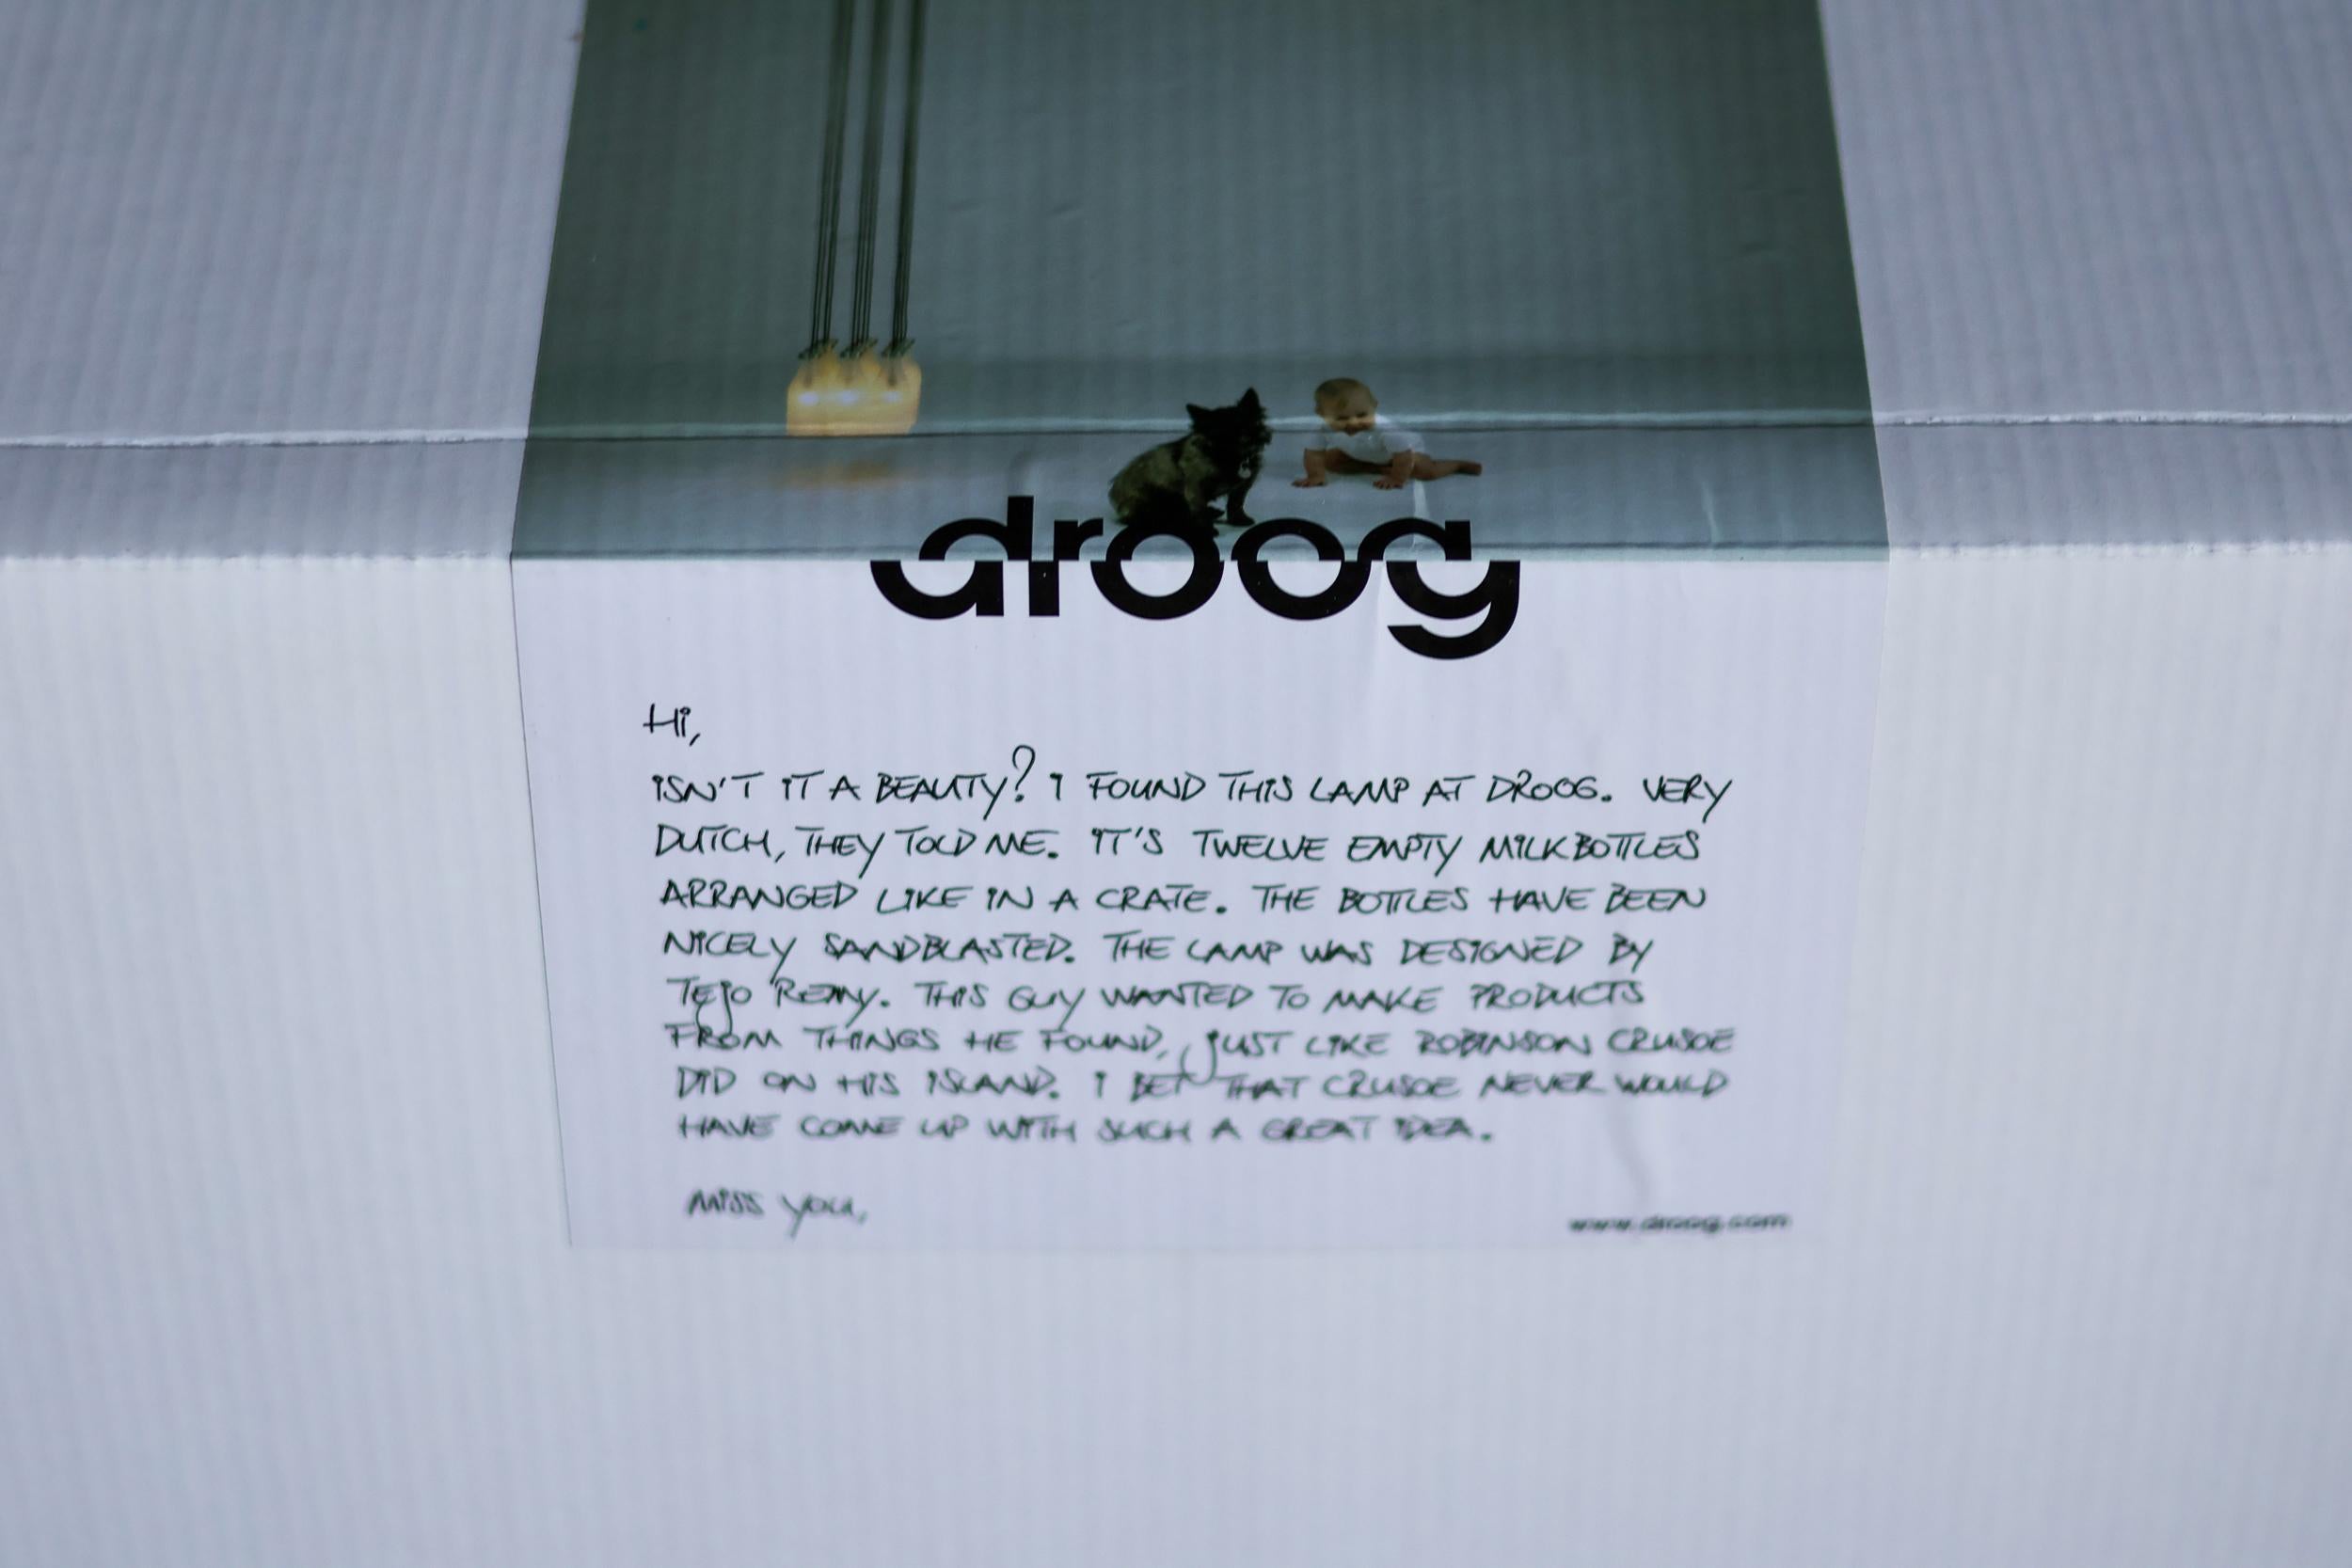 droog
Hi,
ISN'T IT A BEAUTY? I FOUND THIS LAMP AT DROOG. VERY
DUTCH, THEY TOLD ME. IT'S TWELVE EMPTY MILKBOTTLES
ARRANGED LIKE IN A CRATE. THE BOTTLES HAVE BEEN
NICELY SANDBLASTED. THE LAMP WAS DESIGNED BY
TEJO REMY. THIS GUY WANTED TO MAKE PRODUCTS
FROM THINGS HE FOUND, JUST LIKE ROBINSON CRUSOE
DID ON HIS ISLAND. I BET THAT CRUSOE NEVER WOULD
HAVE COME UP WITH SUCH A GREAT IDEA.
MISS YOU,
www.droog.com